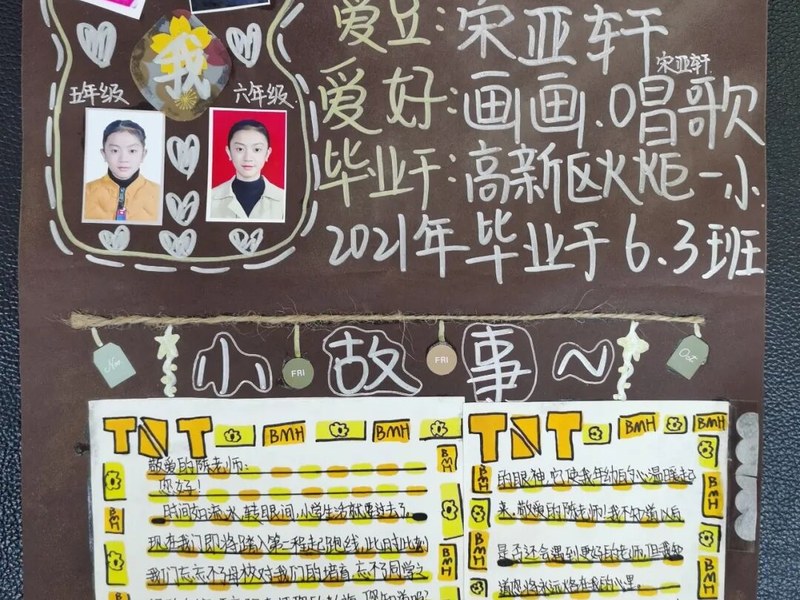 我
五年级
六年级
爱豆:宋亚轩
宋亚轩
爱好:画画、唱歌
毕业于:高新区火炬一小
2021年毕业于6.3班
Nov
FRI
FRI
Oct
小故事~
TNT BMH BMH
敬爱的陈老师:
您好!
时间如流水,转眼间,小学生活就要过去了
现在我们即将踏入第二程起跑线,此时此刻
我们忘不了母校对我们的培育,忘不了同学之
BMH
BMH
BMH
BMH
TNT BMH BMH
的眼神,它使我年幼的心温暖起
来,敬爱的陈老师!我不知道以后
是否还会遇到更好的老师,但我知
道您将永远烙在我的心里
BMH
BMH
BMH
BMH